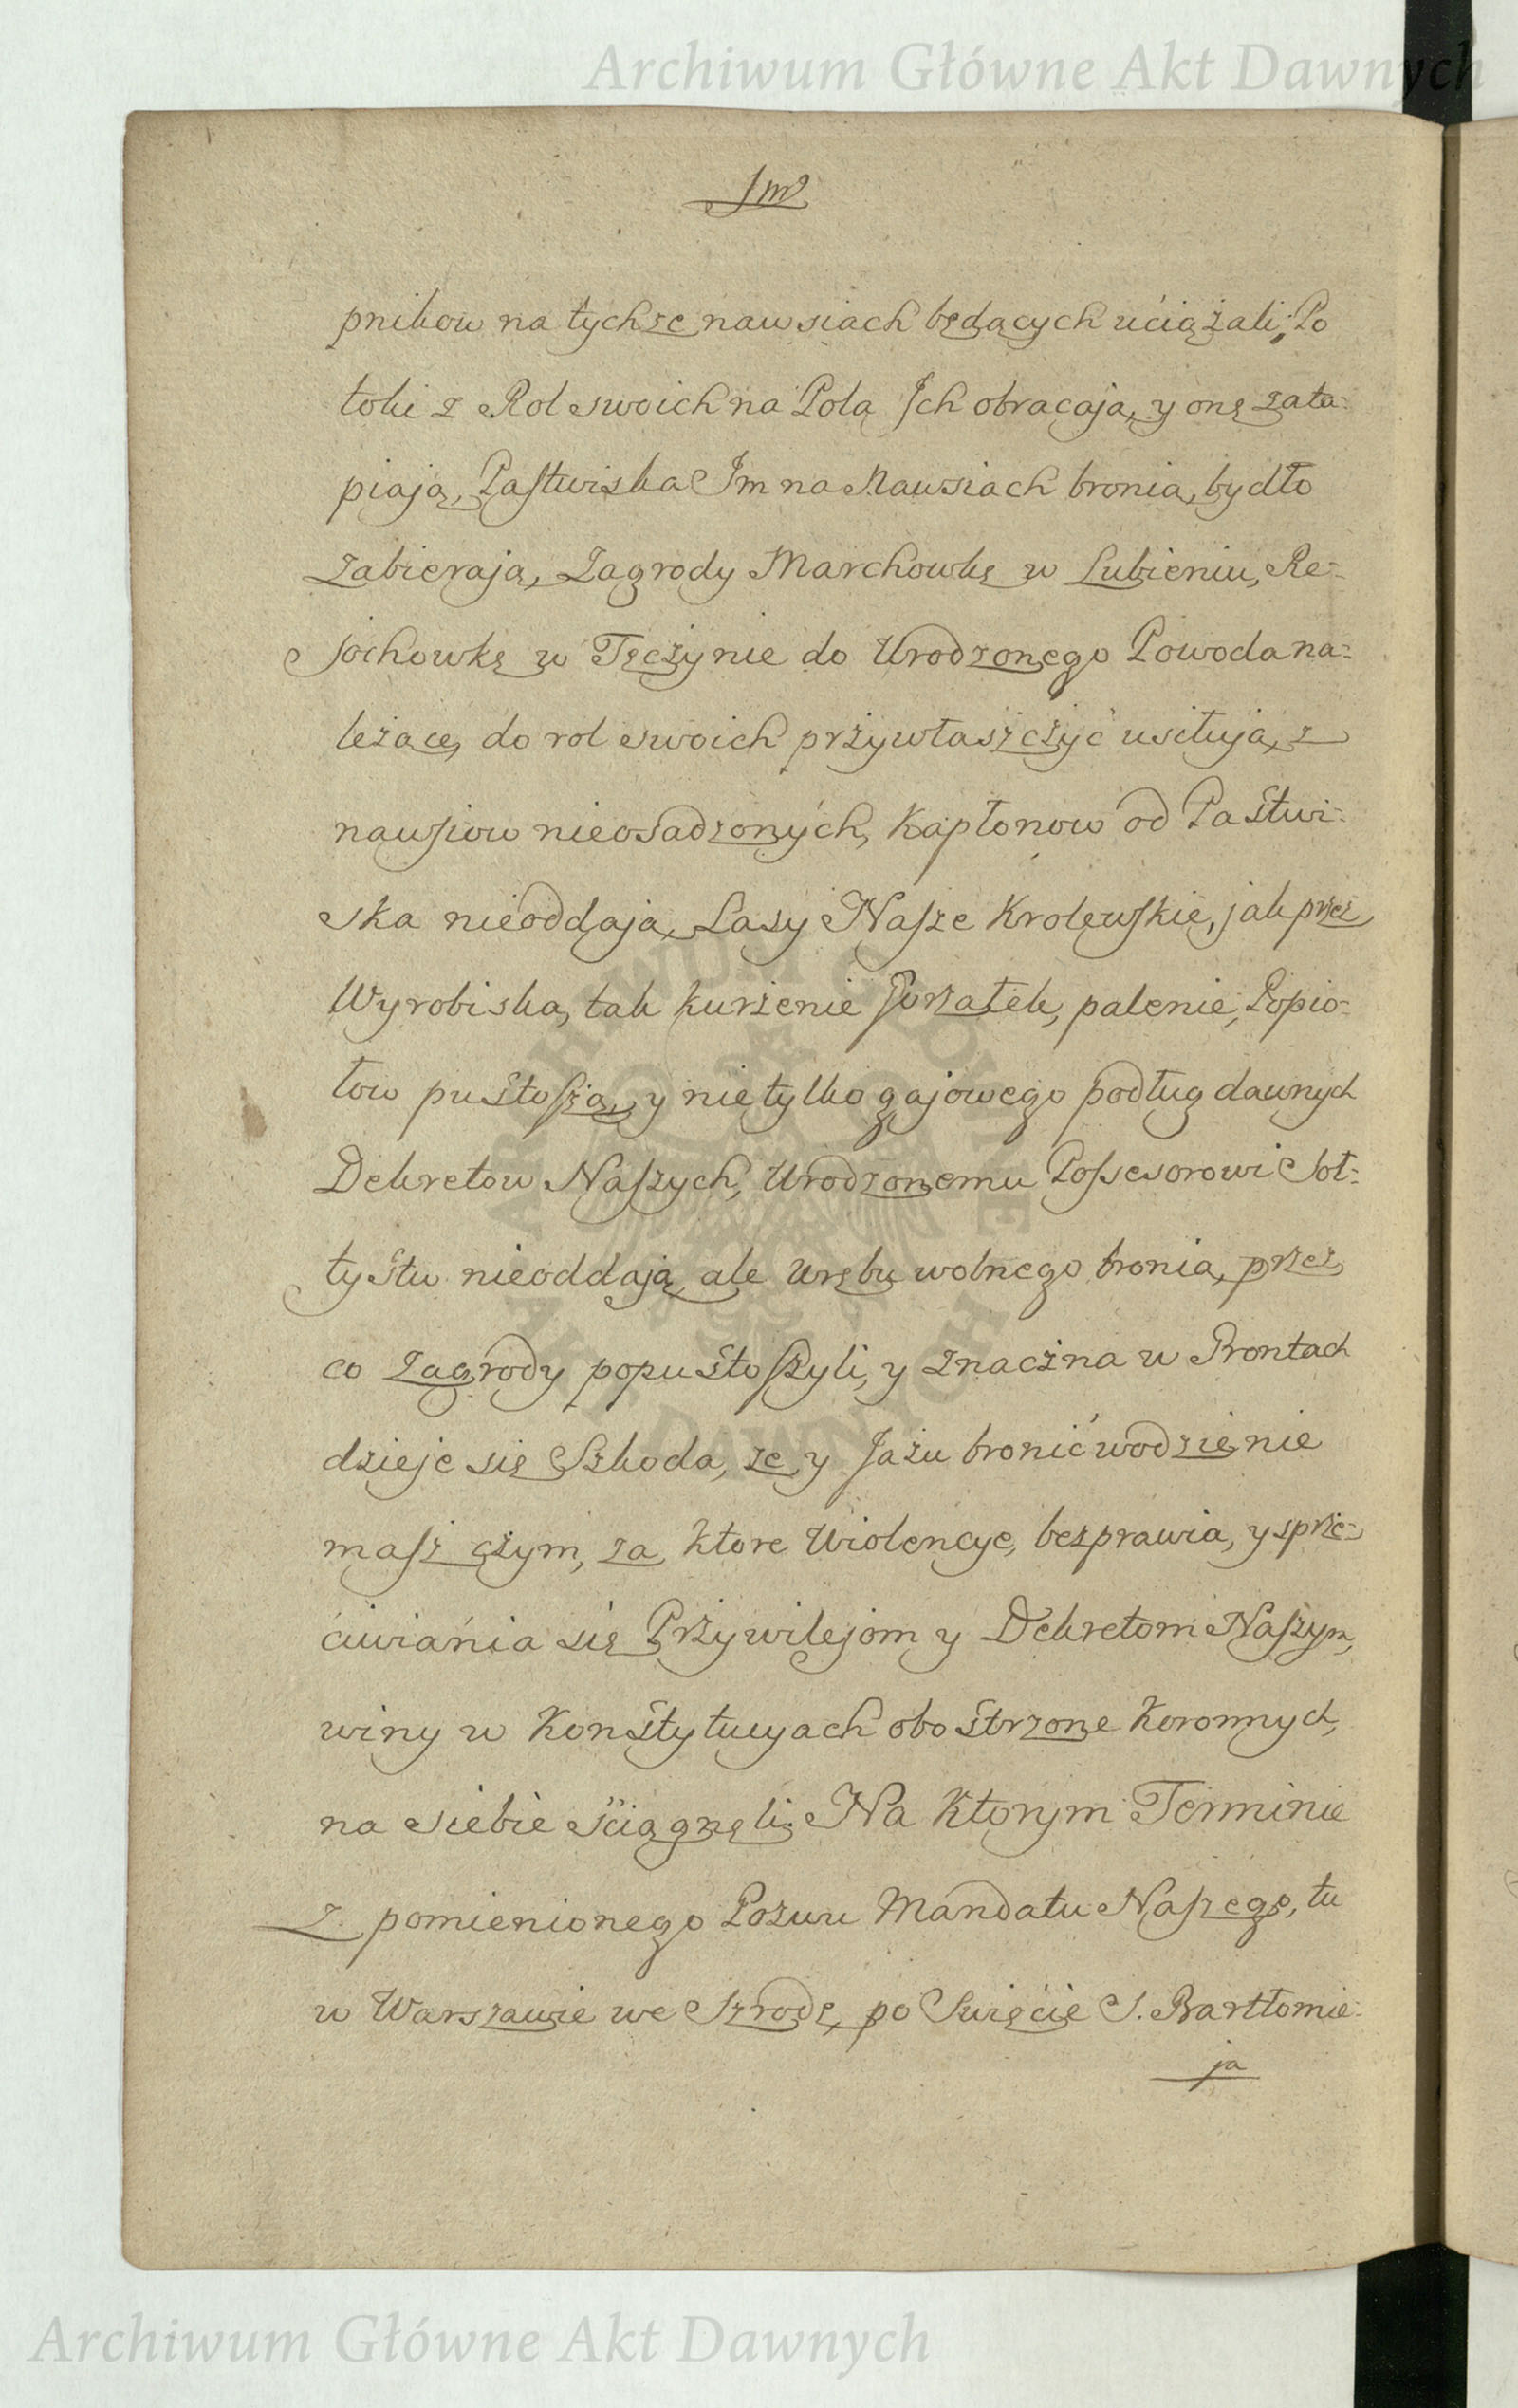 Archiwum Główne Akt Dawnych
pnikow na tychże nawsiach będących uciążali, Po
toki z Rol swoich na Pola Ich obracaja, y onę zata:
piaja, Pastwiska Im na Nawsiach bronia, bydło
zabieraja, Zagrody Marchowkę w Lubieniu, Re:
sochowkę w Tęczynie do Urodzonego Powoda na:
leżące, do rol swoich przywłaszczyć usiłuja, z
nawsiow nieosadzonych, Kapłonow od Pastwi:
ska nieoddaja, Lasy Nasze Krolewskie, jak przez
Wyrobiska, tak kurzenie Gorzałek, palenie, Popio:
łow pustoszą, y nietylko gajowego podług dawnych
Dekretow Naszych, Urodzonemu Possesorowi Soł:
tystw nieoddają ale wrębu wolnego bronia, przez
co Zagrody popustoszyli, y znaczna w Prontach
dzieje się Szkoda, że y Jazu bronić wodzie nie
masz czym, za ktore Wiolencye, bezprawia, y sprze:
ciwiania się Przywilejom y Dekretom Naszym,
winy w Konstytucyach obostrzone Koronnych,
na siebie sciągnęli. Na Ktorym Terminie
z pomienionego Pozwu Mandatu Naszego, tu
w Warszawie we Szrodę, po Swięcie S. Bartłomie:
ja
ARCHIWUM GŁÓWNE
AKT DAWNYCH
Archiwum Główne Akt Dawnych